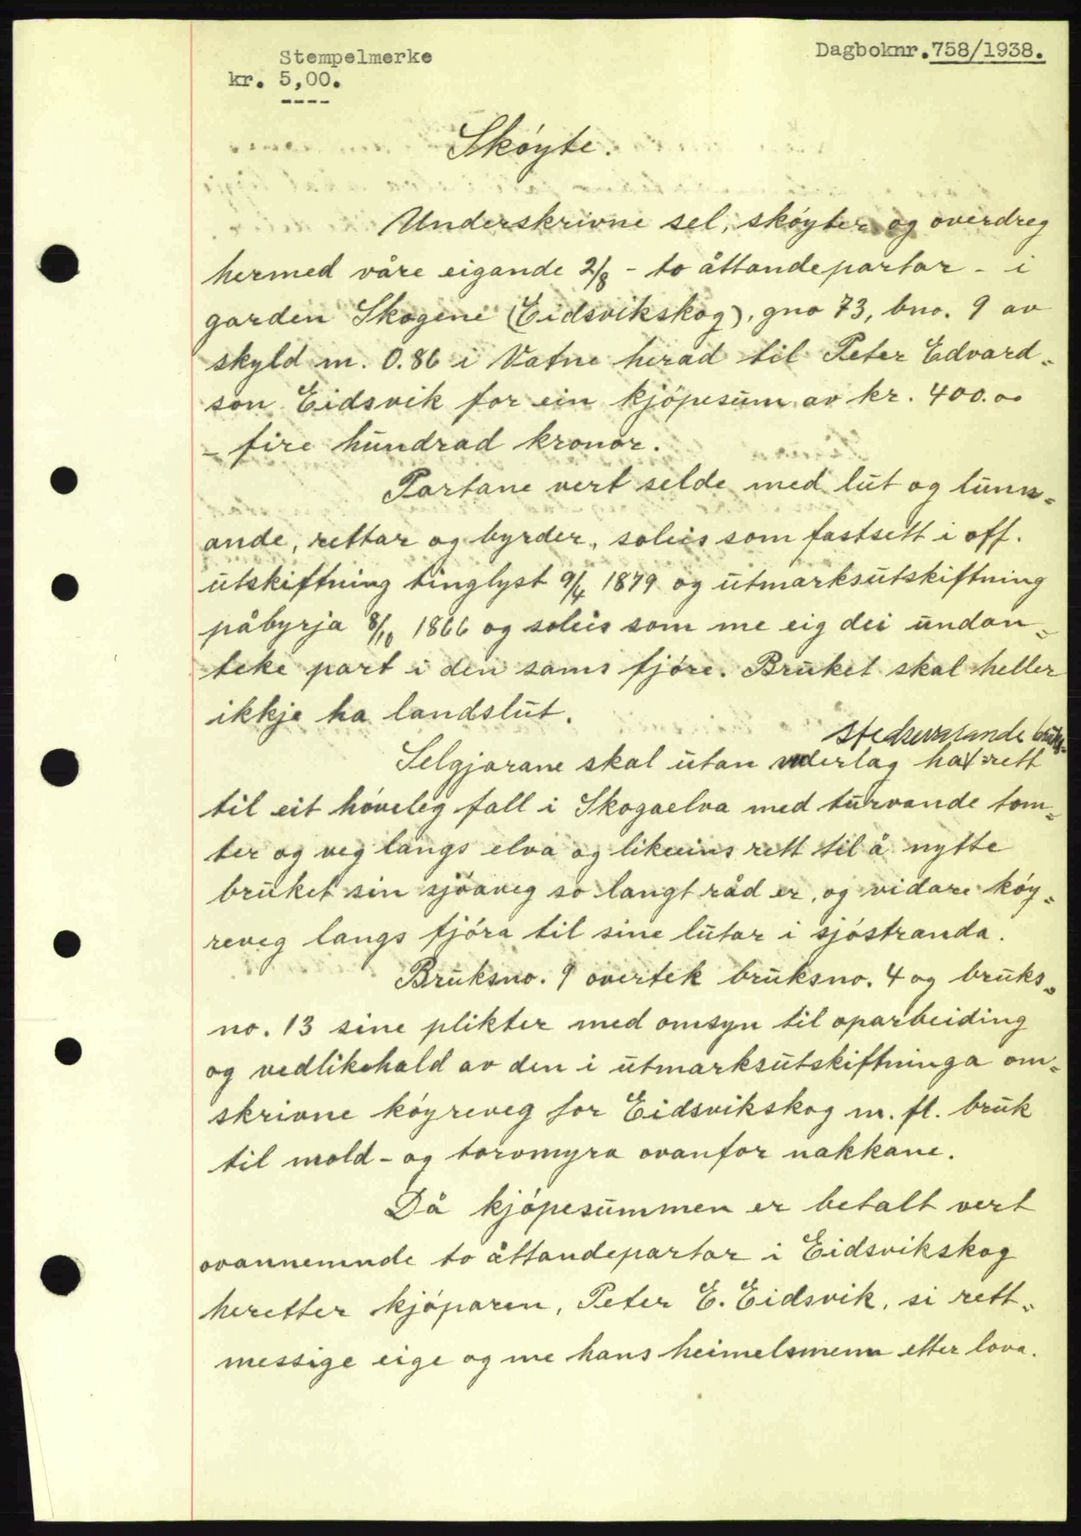 Stempelmerke
Dagboknr. 758/1938.
kr. 5,00.
----
Skóyte.
Underskrivne sel, skóyter og overdreg
hermed våre eigande 2/8 - to åttandepartar - i
garden Skogene (Eidsvikskog), gno 73, bno. 9 av
skyld m. 0.86 i Vatne herad til Peter Edvard-
son Eidsvik for ein kjöpesum av kr. 400.00
- fire hundrad kronor.
Partane vert selde med lut og lunn-
ande, rettar og byrder, soleis som fastsett i off.
utskiftning tinglyst 9/4 1879 og utmarksutskiftning
påbyrja 8/10 1866 og soleis som me eig dei undan-
teke part i den sams fjóre. Bruket skal heller
ikkje ha landslut.
stedsevarande bruks-
Selgjarane skal utan vederlag ha rett
til eit hóveleg fall i Skogaelva med turvande tom-
ter og veg langs elva og likeeins rett til å nytte
bruket sin sjöaveg so langt råd er, og vidare kóy-
reveg langs fjóra til sine lutar i sjóstranda.
Bruksno. 9 overtek bruksno. 4 og bruks-
no. 13 sine plikter med omsyn til oparbeiding
og vedlikehald av den i utmarksutskiftninga om-
skrivne kóyreveg for Eidsvikskog m. fl. bruk
til mold- og torvmyra ovanfor nakkane.
Då kjópesummen er betalt vert
ovannemnde to åttandepartar i Eidsvikskog
heretter kjóparen, Peter E. Eidsvik, si rett-
messige eige og me hans heimelsmenn etter lova.